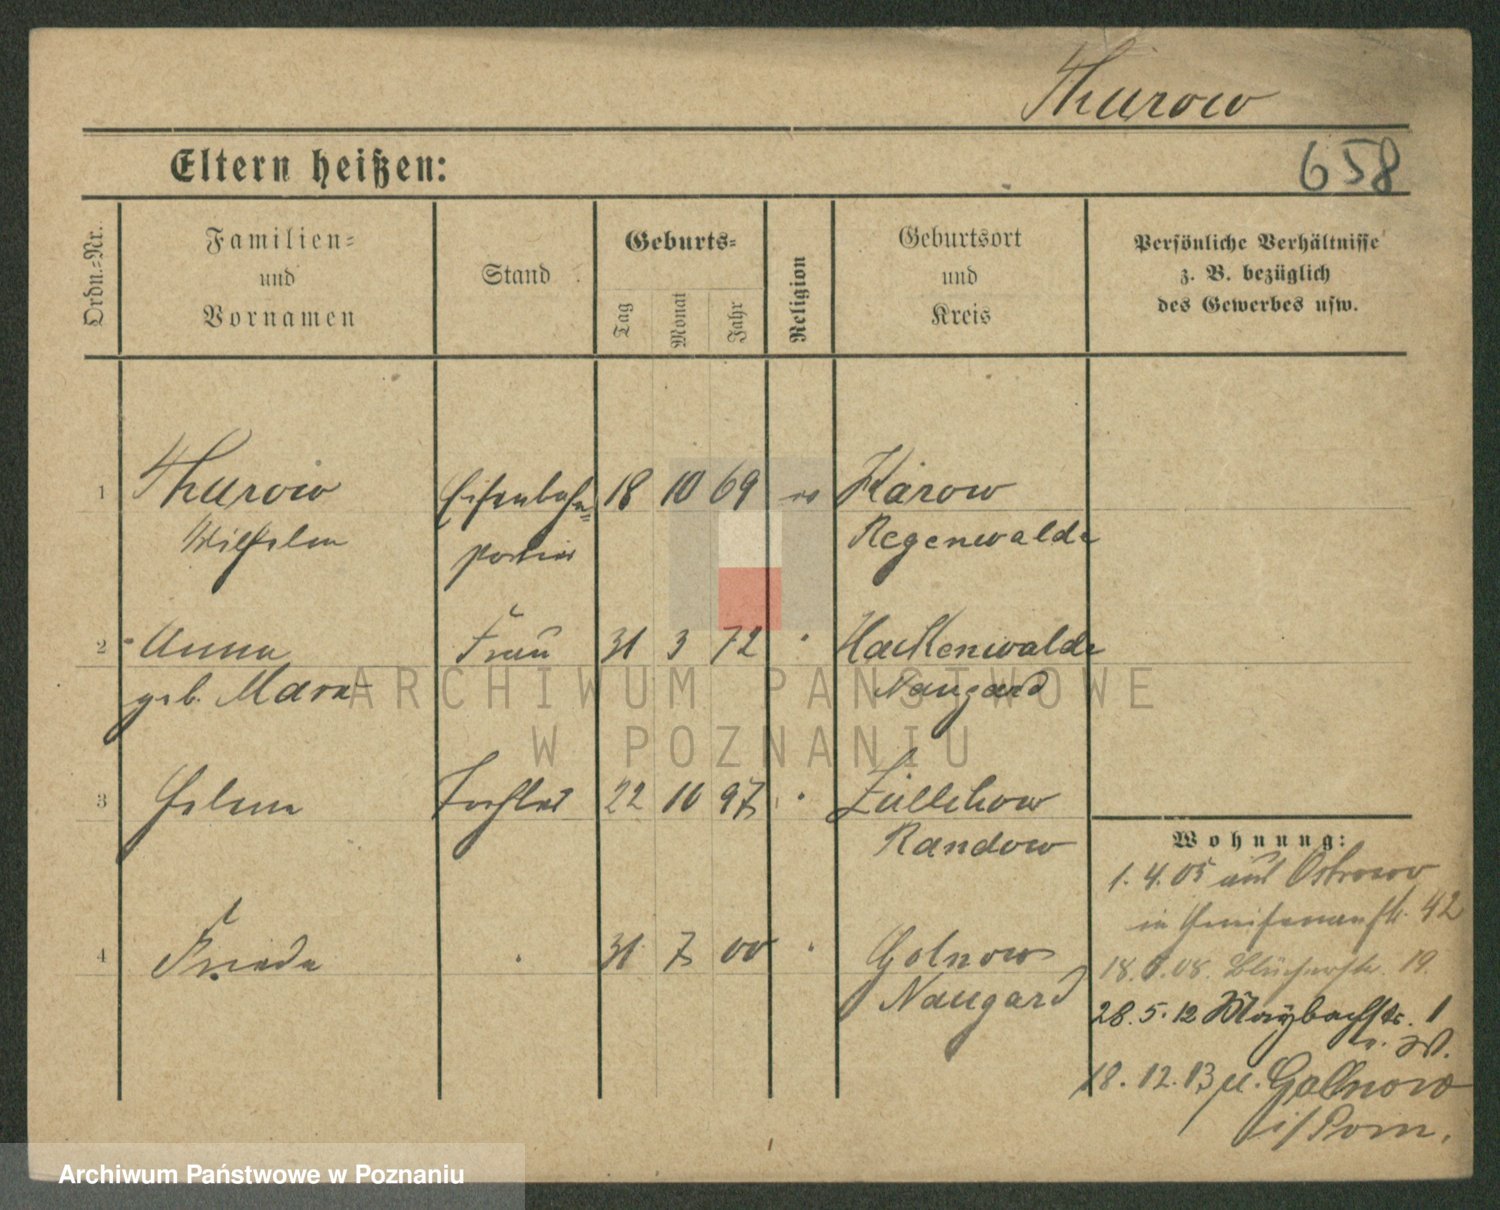 Thurow
Eltern heißen:
658
Ordn.-Nr.
Familien-
und
Vornamen
Stand
Geburts-
Tag
Monat
Jahr
Religion
Geburtsort
und
Kreis
Persönliche Verhältnisse
z. B. bezüglich
des Gewerbes usw.
1 Thurow Eisenbahn- 18 10 69 ev Karow
Wilhelm portier Regenwalde
2 Anna Frau 31 3 72 Hackenwalde
geb. Naugard
3 Helene Tochter 22 10 97 Züllchow
Randow
4 Frieda 31 7 00 Golnow
Naugard
Wohnung:
1.4.05 aus Ostrowo
in Gneisenaustr. 42
18. 08. Blücherstr. 19.
28.5.12 Maybachstr. 1
18.12.13 n. Gollnow
i/Pom.
ARCHIWUM PAŃSTWOWE
W POZNANIU
Archiwum Państwowe w Poznaniu